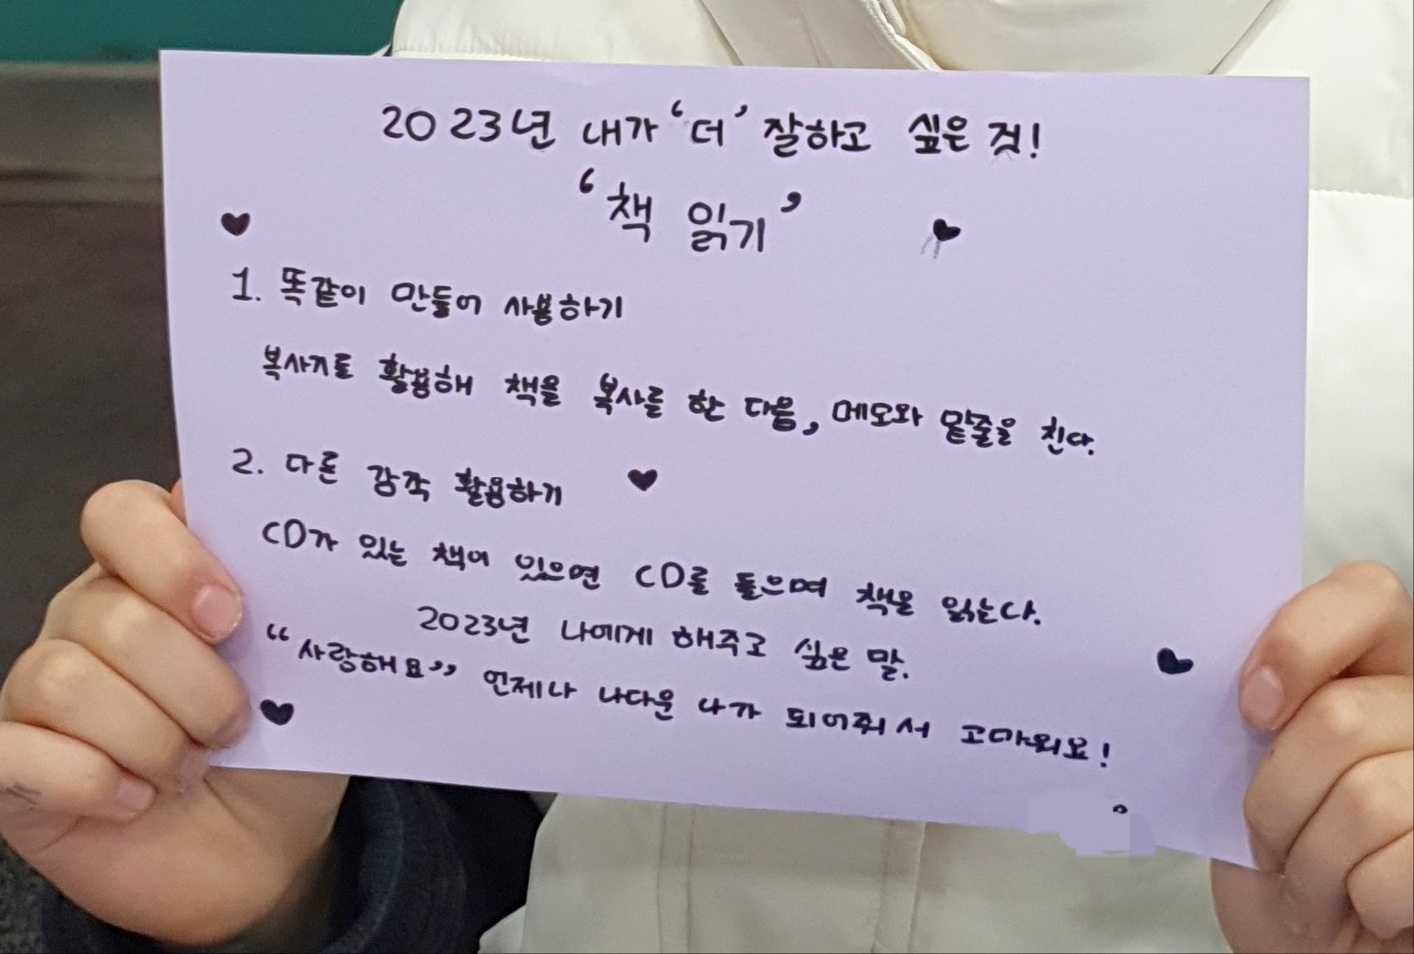 2023년 내가 '더' 잘하고 싶은 것!
'책 읽기'
1. 똑같이 만들어 사용하기
복사기로 활용해 책을 복사를 한 다음, 메모와 밑줄을 친다.
2. 다른 감각 활용하기
CD가 있는 책이 있으면 CD를 들으며 책을 읽는다.
2023년 나에게 해주고 싶은 말.
"사랑해요" 언제나 나다운 나가 되어줘서 고마워요!